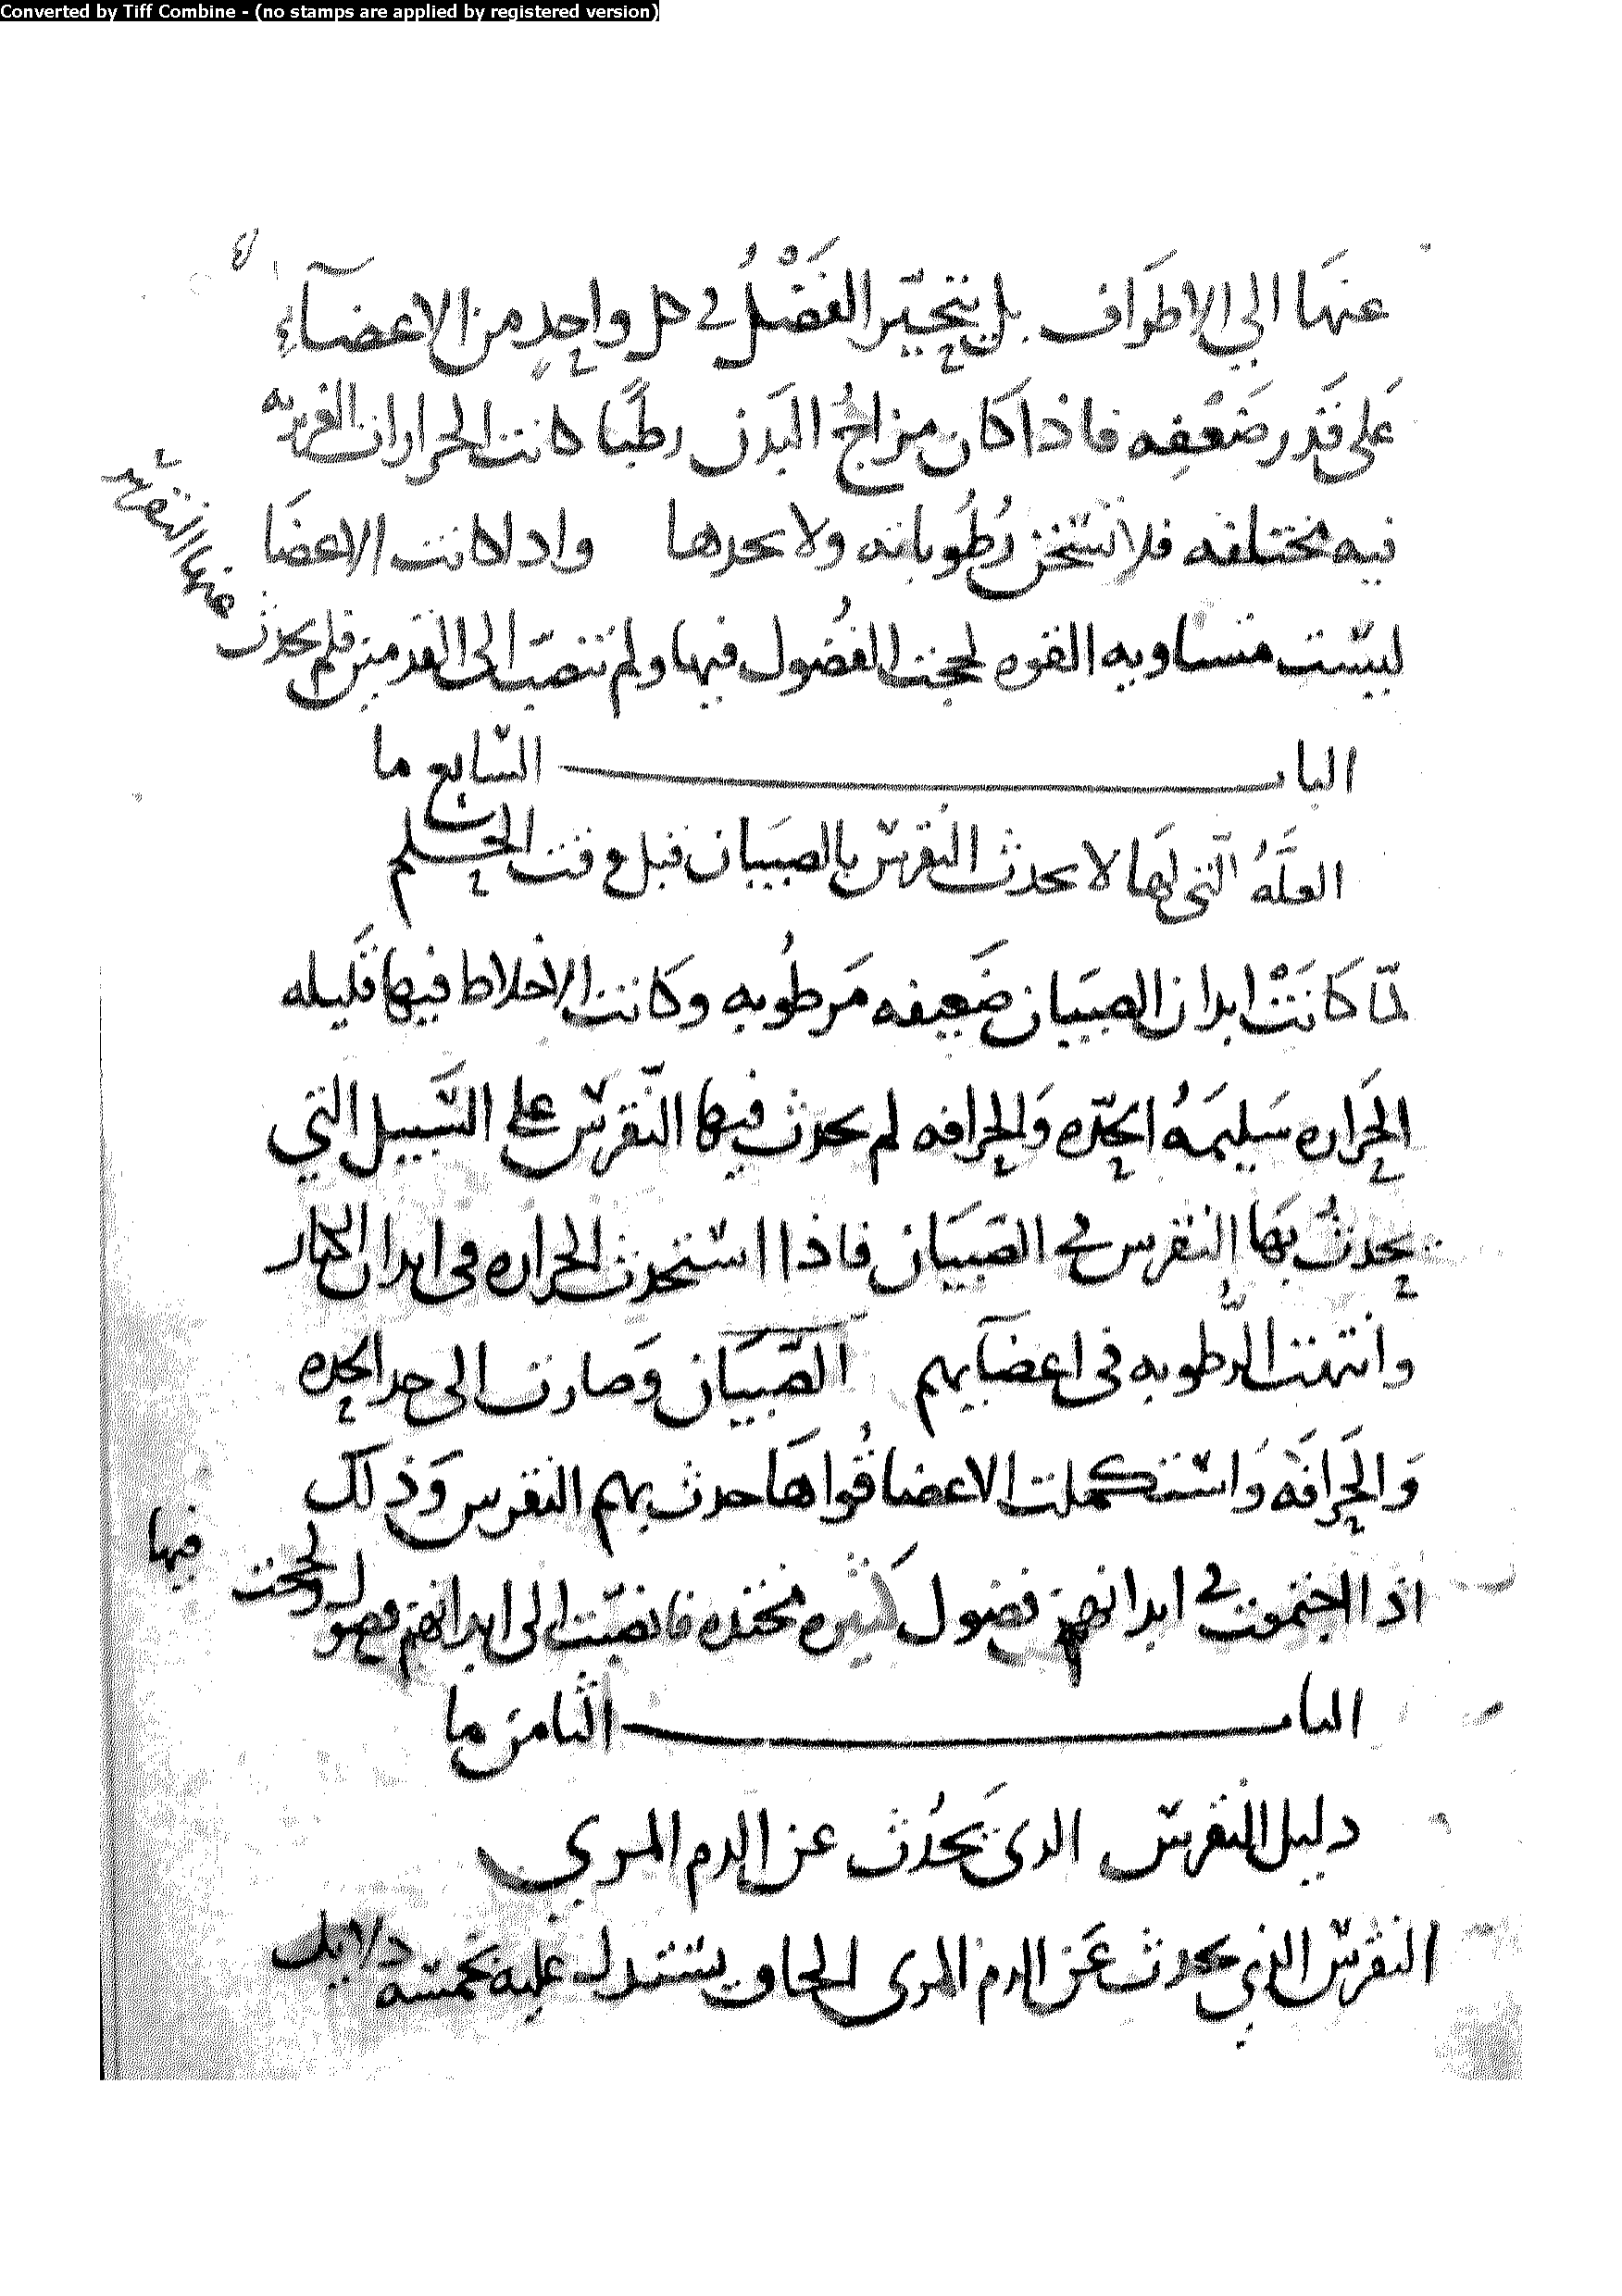 Converted by Tiff Combine - (no stamps are applied by registered version)
عنَها الي الاطرَاف بل يتحيّر الفَضْلُ في كل واحِدٍ من الاعضَآءِ
عَلى قَدر ضَعفِه فاذا كَان مزاجُ البَدن رطبًا كانت الحرارات الغريبه
فيه مختلفه فلا تسخن رُطُوباته ولا يحدها واذا كانت الاعضَا
ليسَت متساويه القوه لحجت الفضُول فيها ولم تنصَب الى القدمين فلم يحدث
عنها النقرس
الباب السّابع ما
العلَّهُ الّتى لهَا لا يحدث النقرسّ بالصبيَان قبل وقت الحلم
لمّا كَانَتْ ابدان الصبيَان ضَعيفه مَرطُوبه وكانت الاخلاط فيها قَليله
الحَراره سَليمَهُ الحدّه وَالحرافه لم يحدث فيها النّقرسّ على السَّبيل التي
يحدثُ بهَا النقرس في الصَبيَان فاذا استحدث الحراره في ابدان الكبار
وانتهت الرطوبه في اعضَايهم الصّبيَان وَصارت الى حد الحده
وَالحَرافَه وَاستكملت الاعضا قُواهَا حدث بهم النقرس وَذلك
اذا اجتمعت في ابدانهم فضول كَثيره محتده فانصَبّت الى ابدانهم فصول ولحجت فيها
الباب الثامن ما
دليل النقرسّ الذى يَحدُث عن الدم المري
النقرسّ الذي يحدث عَن الدم المرى الحاد يستدل عليه بخمسه دلايل